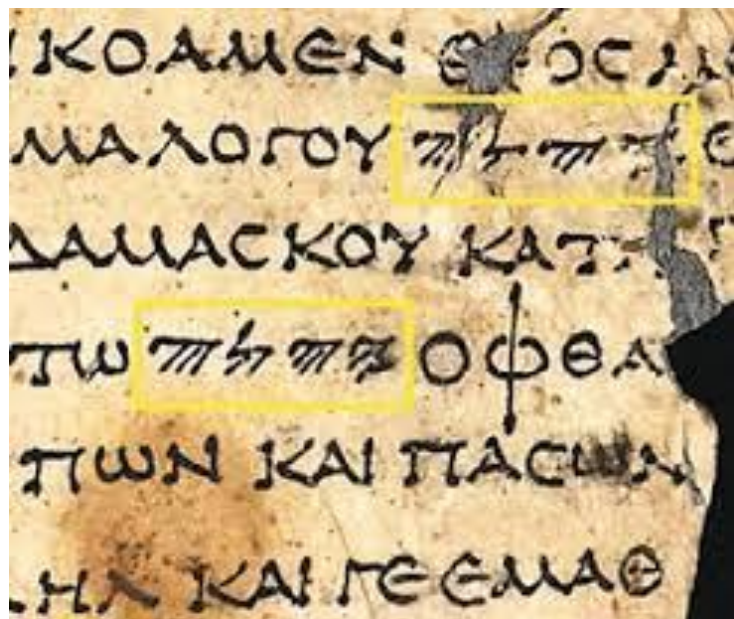 ΚΟΑΜΕΝ
ΜΑ ΛΟΓΟΥ 𐤉𐤄𐤅𐤄
ΔΑΜΑϹΚΟΥ ΚΑΤΑ
ΤΩ 𐤉𐤄𐤅𐤄 ΟΦΘΑ
ΠΩΝ ΚΑΙ ΠΑϹΩΝ
ΗΛ ΚΑΙ ΓΕ ΕΜΑΘ